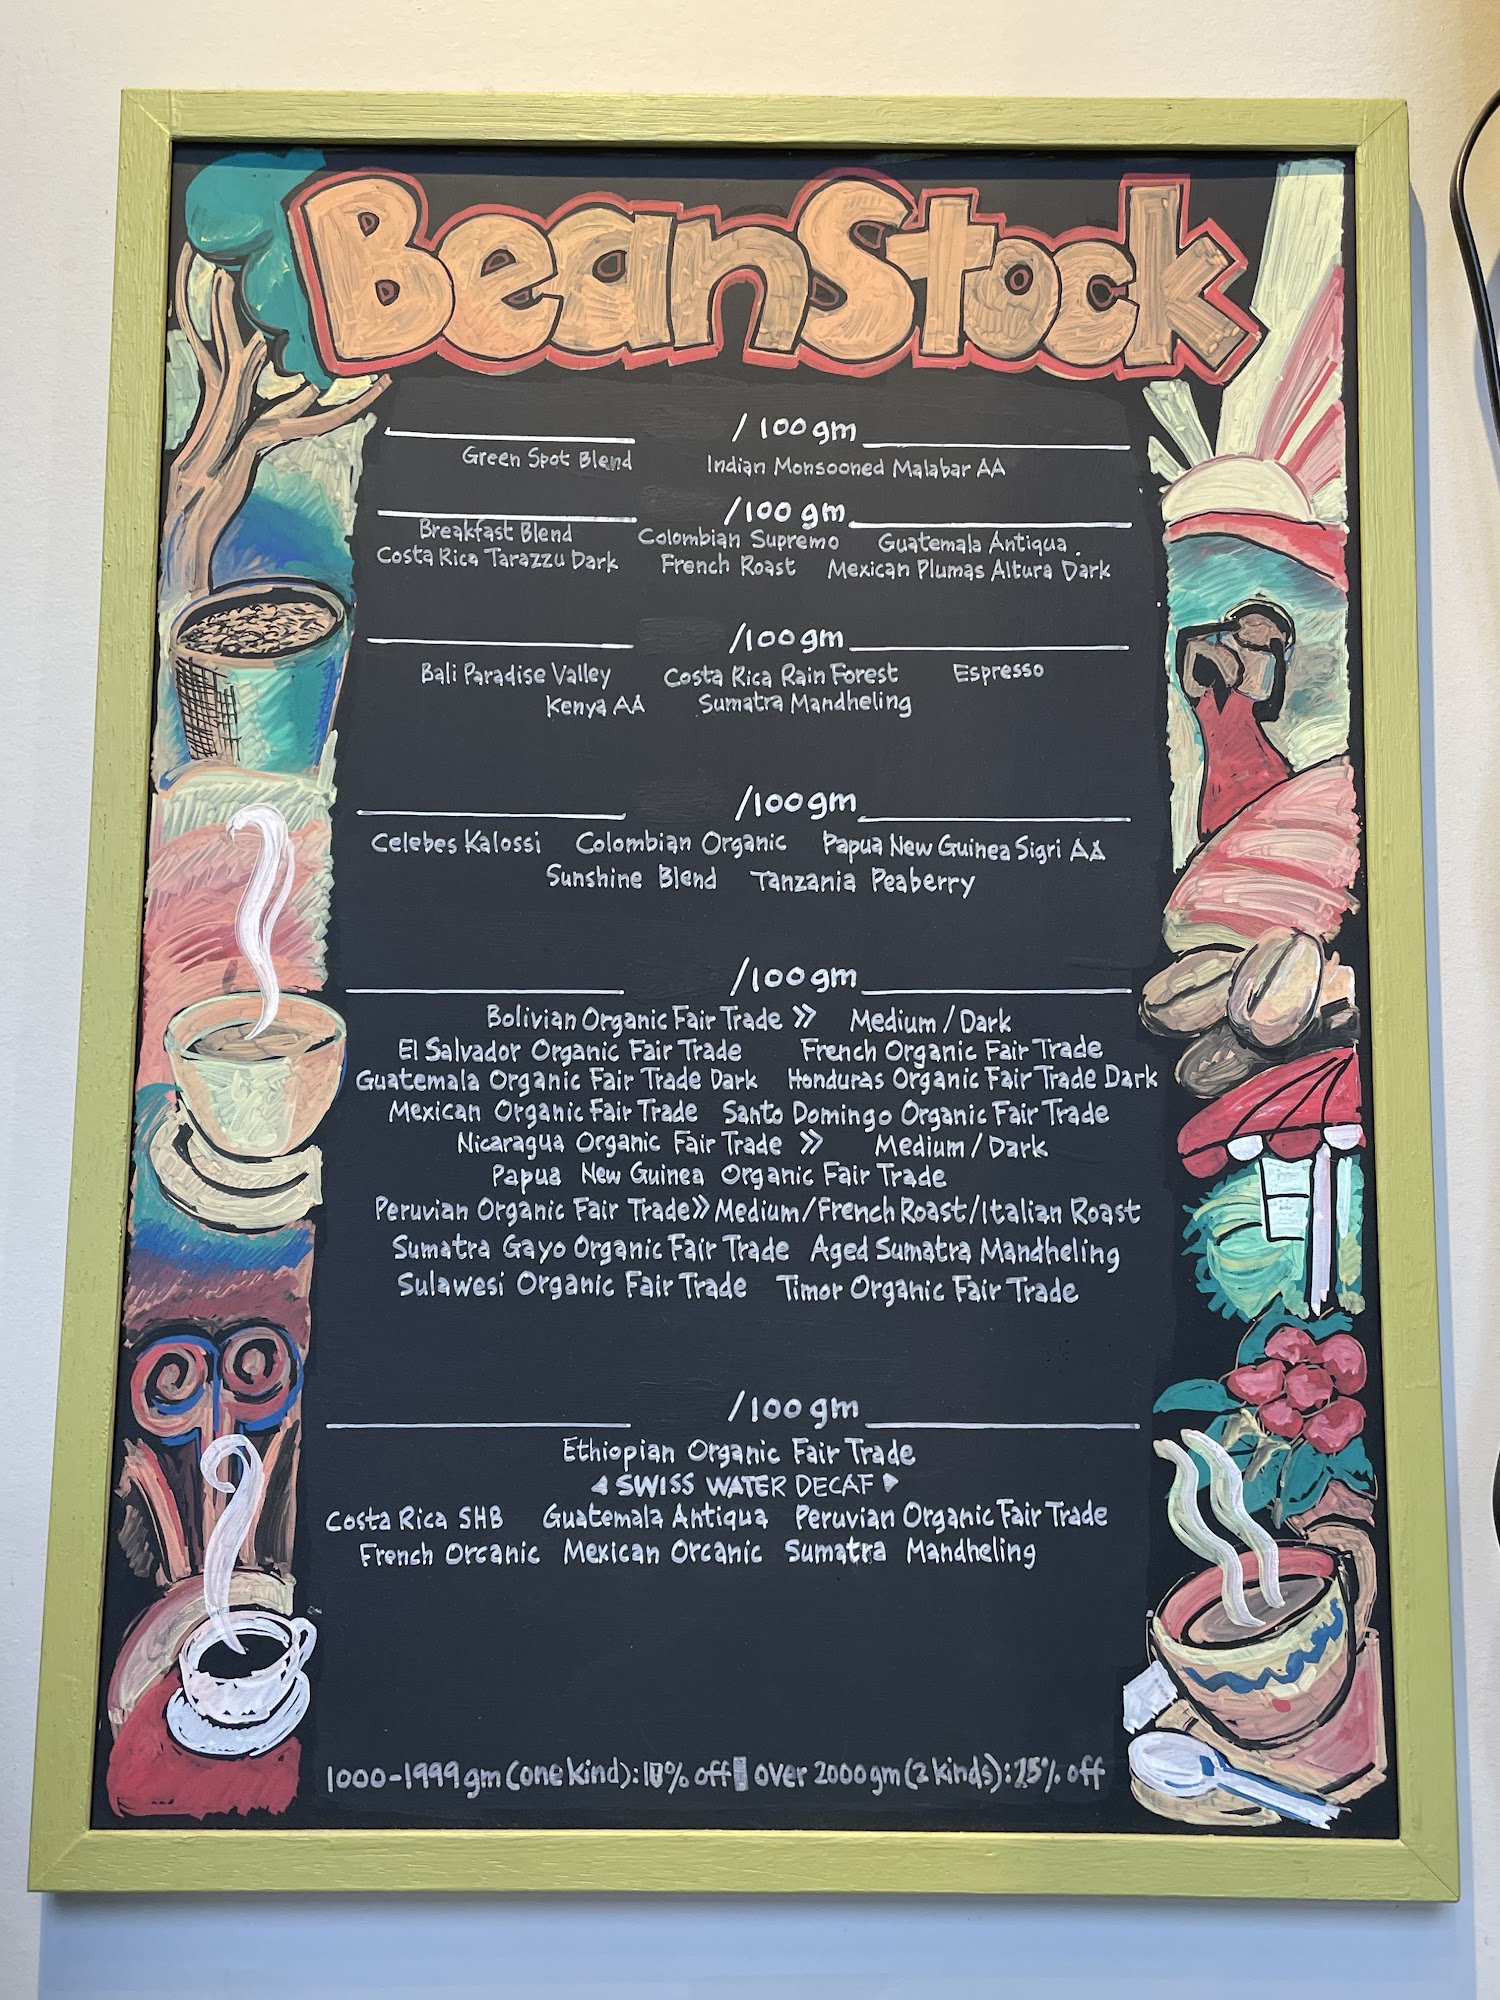 BeanStock
/100gm
Green Spot Blend Indian Monsooned Malabar AA
/100 gm
Breakfast Blend Colombian Supremo Guatemala Antiqua
Costa Rica Tarazzu Dark French Roast Mexican Plumas Altura Dark
/100gm
Bali Paradise Valley Costa Rica Rain Forest Espresso
Kenya AA Sumatra Mandheling
/100gm
Celebes Kalossi Colombian Organic Papua New Guinea Sigri AA
Sunshine Blend Tanzania Peaberry
/100gm
Bolivian Organic Fair Trade >> Medium / Dark
El Salvador Organic Fair Trade French Organic Fair Trade
Guatemala Organic Fair Trade Dark Honduras Organic Fair Trade Dark
Mexican Organic Fair Trade Santo Domingo Organic Fair Trade
Nicaragua Organic Fair Trade >> Medium / Dark
Papua New Guinea Organic Fair Trade
Peruvian Organic Fair Trade>> Medium/French Roast/Italian Roast
Sumatra Gayo Organic Fair Trade Aged Sumatra Mandheling
Sulawesi Organic Fair Trade Timor Organic Fair Trade
/100 gm
Ethiopian Organic Fair Trade
◄ SWISS WATER DECAF ►
Costa Rica SHB Guatemala Antiqua Peruvian Organic Fair Trade
French Orcanic Mexican Orcanic Sumatra Mandheling
1000-1999 gm (one kind): off over 2000gm (2 kinds): off